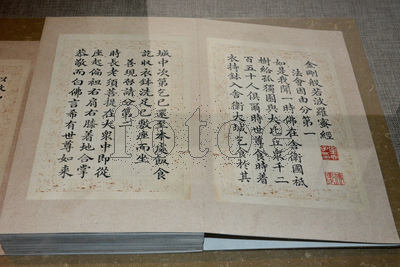 金剛般若波羅蜜經
法會因由分第一
如是我聞一時佛在舍衛國祇
樹給孤獨園與大比丘眾千二
百五十人俱爾時世尊食時著
衣持鉢入舍衛大城乞食於其
城中次第乞已還至本處飯食
訖收衣鉢洗足已敷座而坐
善現啟請分第二
時長老須菩提在大眾中即從
座起偏袒右肩右膝著地合掌
恭敬而白佛言希有世尊如來